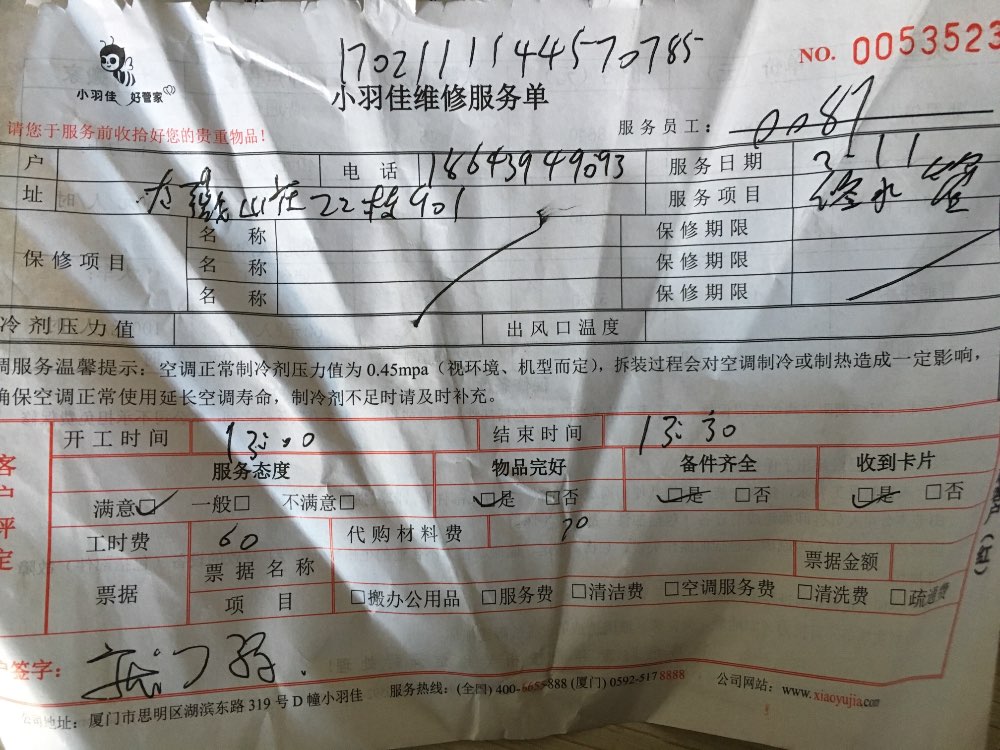 17021111544570785
NO. 0053523
小羽佳 好管家
小羽佳维修服务单
请您于服务前收拾好您的贵重物品！
服务员工： 0087
户 电话 18643949093 服务日期 3-11
址 山庄22栋901 服务项目 修水管
保修项目 名称 保修期限
名称 保修期限
名称 保修期限
冷剂压力值 出风口温度
调服务温馨提示：空调正常制冷剂压力值为 0.45mpa（视环境、机型而定），拆装过程会对空调制冷或制热造成一定影响，
确保空调正常使用延长空调寿命，制冷剂不足时请及时补充。
客户评定
开工时间 13:00 结束时间 13:30
服务态度 物品完好 备件齐全 收到卡片
满意□ 一般□ 不满意□ □是 □否 □是 □否 □是 □否
工时费 60 代购材料费 70
票据 票据名称 票据金额
项目 □搬办公用品 □服务费 □清洁费 □空调服务费 □清洗费 □疏通费
户签字：
公司地址：厦门市思明区湖滨东路 319 号 D 幢小羽佳 服务热线：(全国) 400-6655-888 (厦门) 0592-517 8888 公司网站：www.xiaoyujia.com
客户（红）